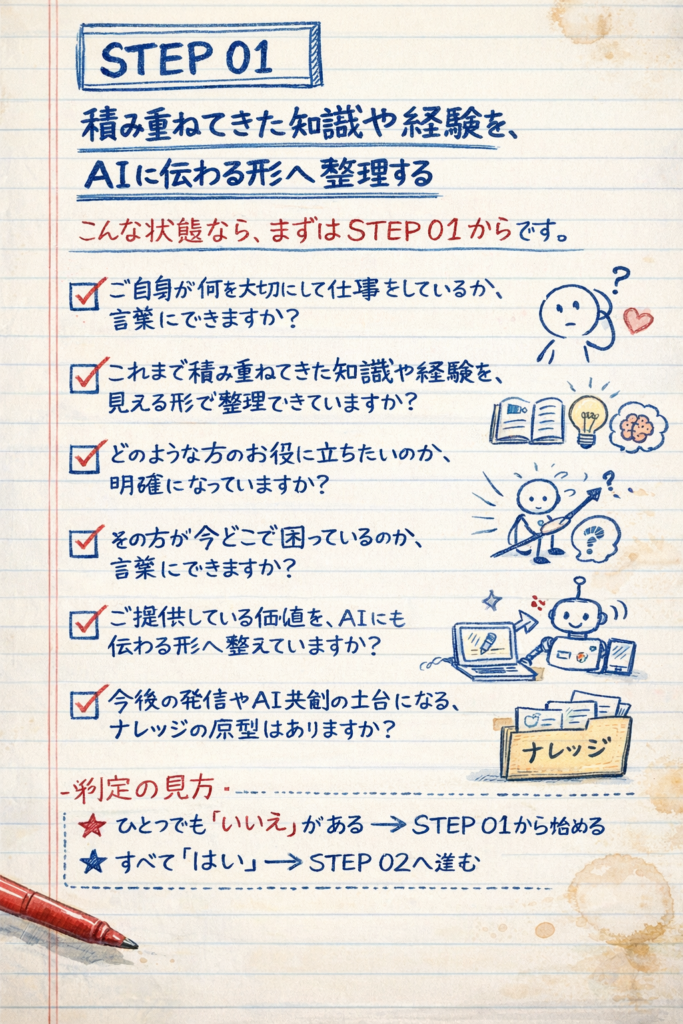 STEP 01
積み重ねてきた知識や経験を、
AIに伝わる形へ整理する
こんな状態なら、まずはSTEP 01からです。
ご自身が何を大切にして仕事をしているか、
言葉にできますか？
?
これまで積み重ねてきた知識や経験を、
見える形で整理できていますか？
どのような方のお役に立ちたいのか、
明確になっていますか？
?
?
その方が今どこで困っているのか、
言葉にできますか？
ご提供している価値を、AIにも
伝わる形へ整えていますか？
今後の発信やAI共創の土台になる、
ナレッジの原型はありますか？
ナレッジ
-判定の見方-
★ ひとつでも「いいえ」がある → STEP 01から始める
★ すべて「はい」 → STEP 02へ進む